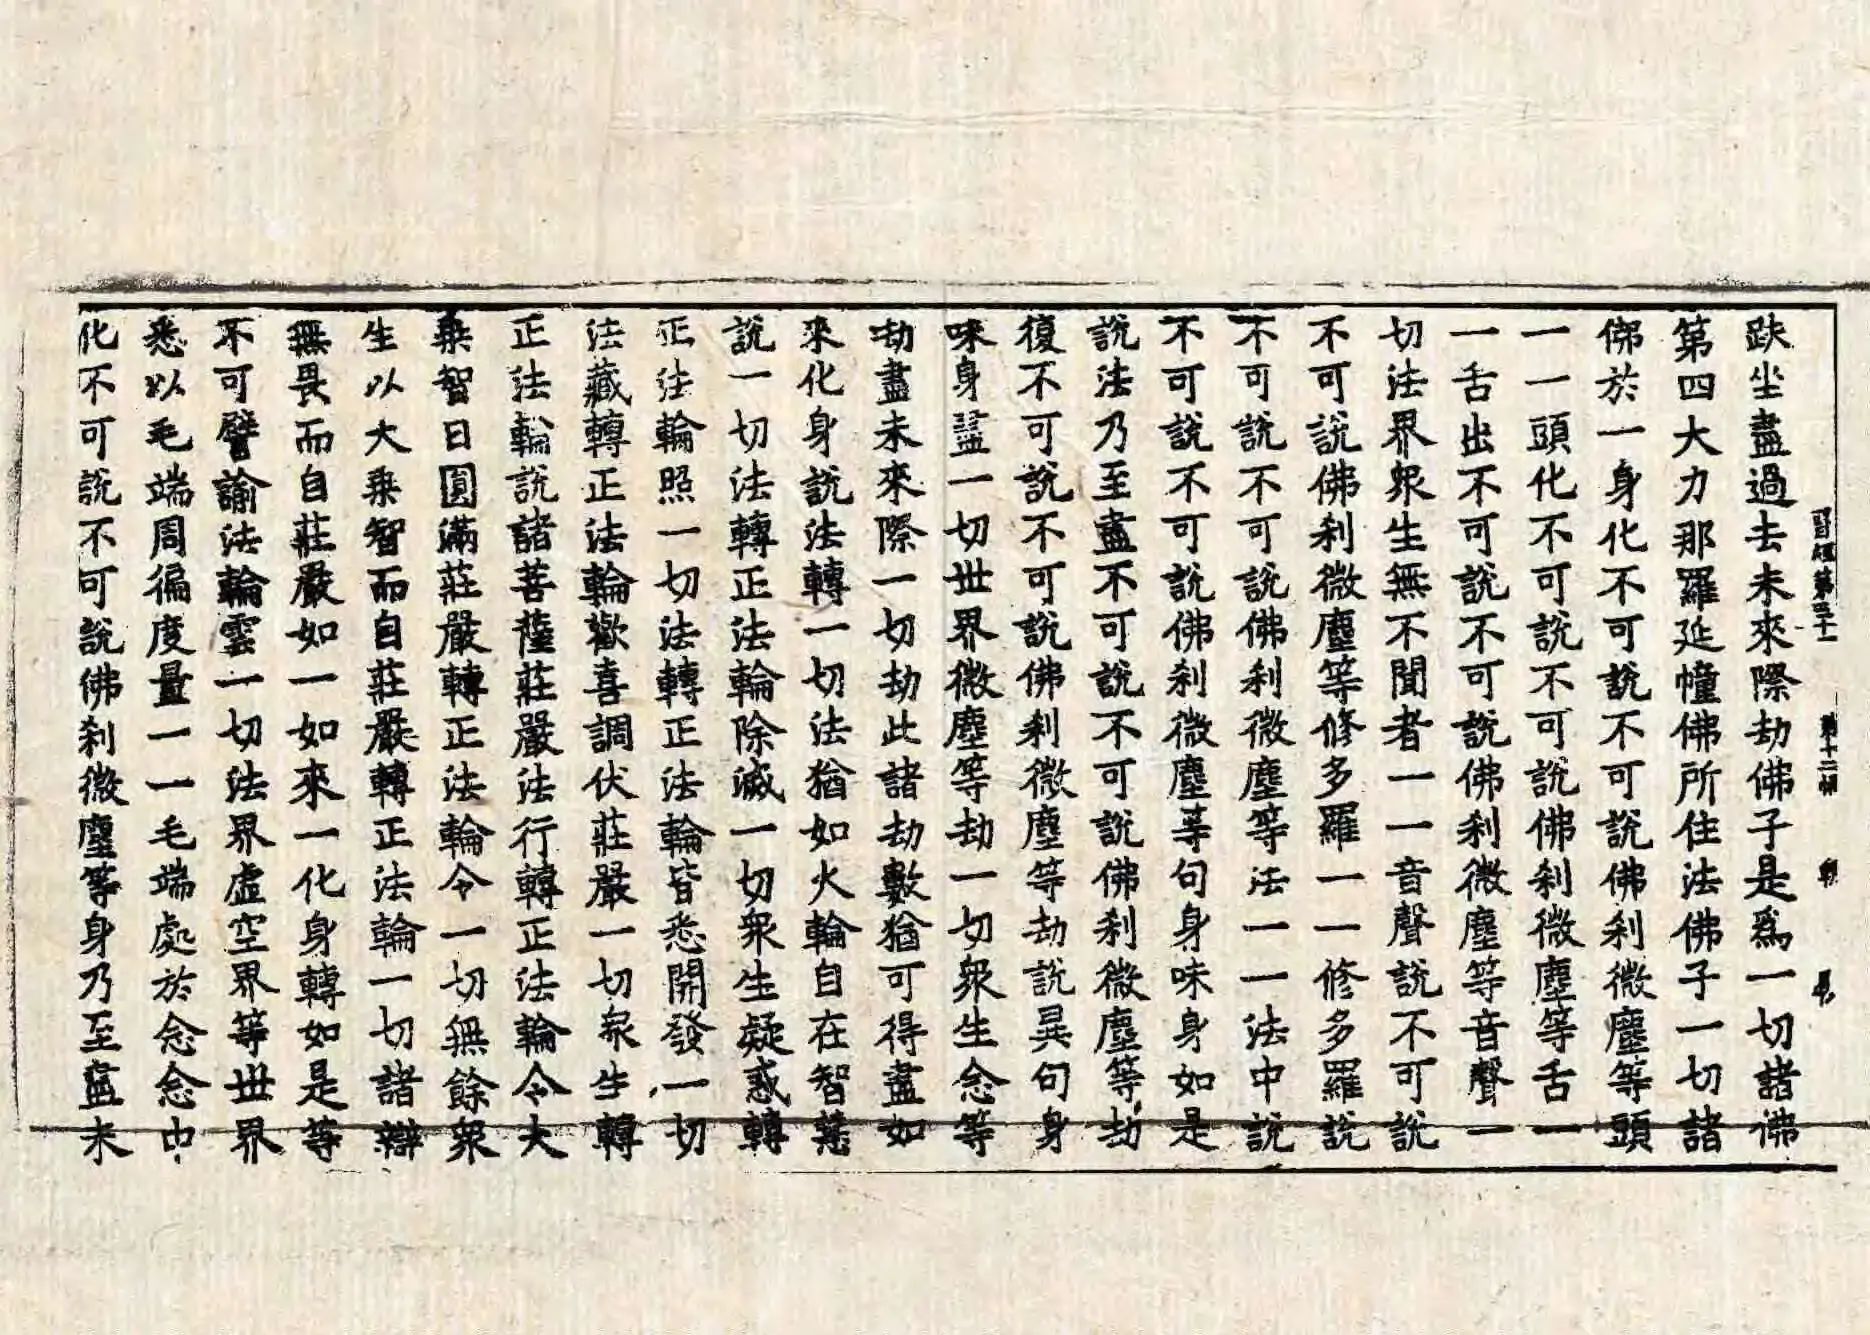 晉經第三十一 第十二張
趺坐盡過去未來際劫佛子是爲一切諸佛
第四大力那羅延幢佛所住法佛子一切諸
佛於一身化不可說不可說佛刹微塵等頭
一一頭化不可說不可說佛刹微塵等舌一
一舌出不可說不可說佛刹微塵等音聲一
切法界衆生無不聞者一一音聲說不可說
不可說佛刹微塵等修多羅一一修多羅說
不可說不可說佛刹微塵等法一一法中說
不可說不可說佛刹微塵等句身味身如是
說法乃至盡不可說不可說佛刹微塵等劫
復不可說不可說佛刹微塵等劫說異句身
味身盡一切世界微塵等劫一切衆生念等
劫盡未來際一切劫此諸劫數猶可得盡如
來化身說法轉一切法猶如火輪自在智慧
說一切法轉正法輪除滅一切衆生疑惑轉
正法輪照一切法轉正法輪皆悉開發一切
法藏轉正法輪歡喜調伏莊嚴一切衆生轉
正法輪說諸菩薩莊嚴法行轉正法輪令大
乘智日圓滿莊嚴轉正法輪令一切無餘衆
生以大乘智而自莊嚴轉正法輪一切諸辯
無畏而自莊嚴如一如來一化身轉如是等
不可譬諭法輪雲一切法界虛空界等世界
悉以毛端周徧度量一一毛端處於念念中
化不可說不可說佛刹微塵等身乃至盡未